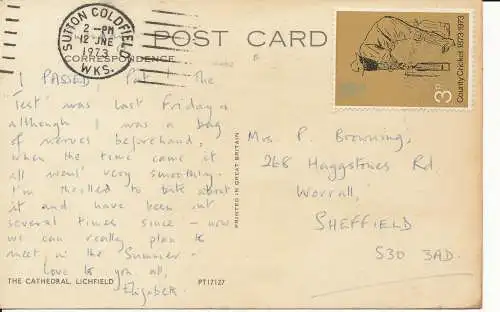 SUTTON COLDFIELD
2 - PM
12 JNE
1973
WKS.
POST CARD
CORRESPONDENCE
3P
County Cricket 1873-1973
I PASSED, Pat! The
'Test' was last Friday &
although I was a bag
of nerves beforehand,
when the time came it
all went very smoothly.
I'm thrilled to bits about
it and have been out
several times since - now
we can really plan to
meet in the Summer.
Love to you all,
Elizabeth.
PRINTED IN GREAT BRITAIN
Mrs P. Browning,
268 Haggstones Rd
Worrall,
SHEFFIELD
S30 3AD.
THE CATHEDRAL, LICHFIELD
PT17127